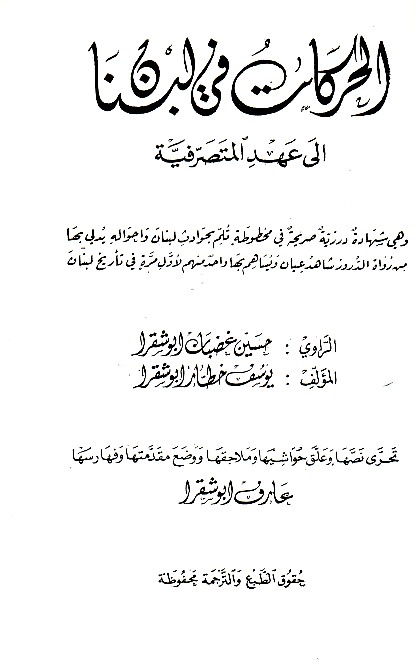 الحركات في لبنان
الى عهد المتصرفية
وهي شهادة درزية صريحة في مخطوطة تلم بحوادث لبنان واحواله يدلي بها
من رواة الدروز شاهد عيان ويساهم بها واحد منهم لأول مرة في تأريخ لبنان
الراوي : حسين غضبان ابو شقرا
المؤلف : يوسف خطار ابو شقرا
تحرى نصها وعلق حواشيها وملاحقها ووضع مقدمتها وفهارسها
عارف ابو شقرا
حقوق الطبع والترجمة محفوظة